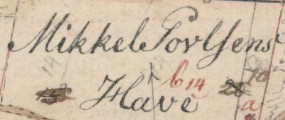 Mikkel Povlsens
Have 6 14 a